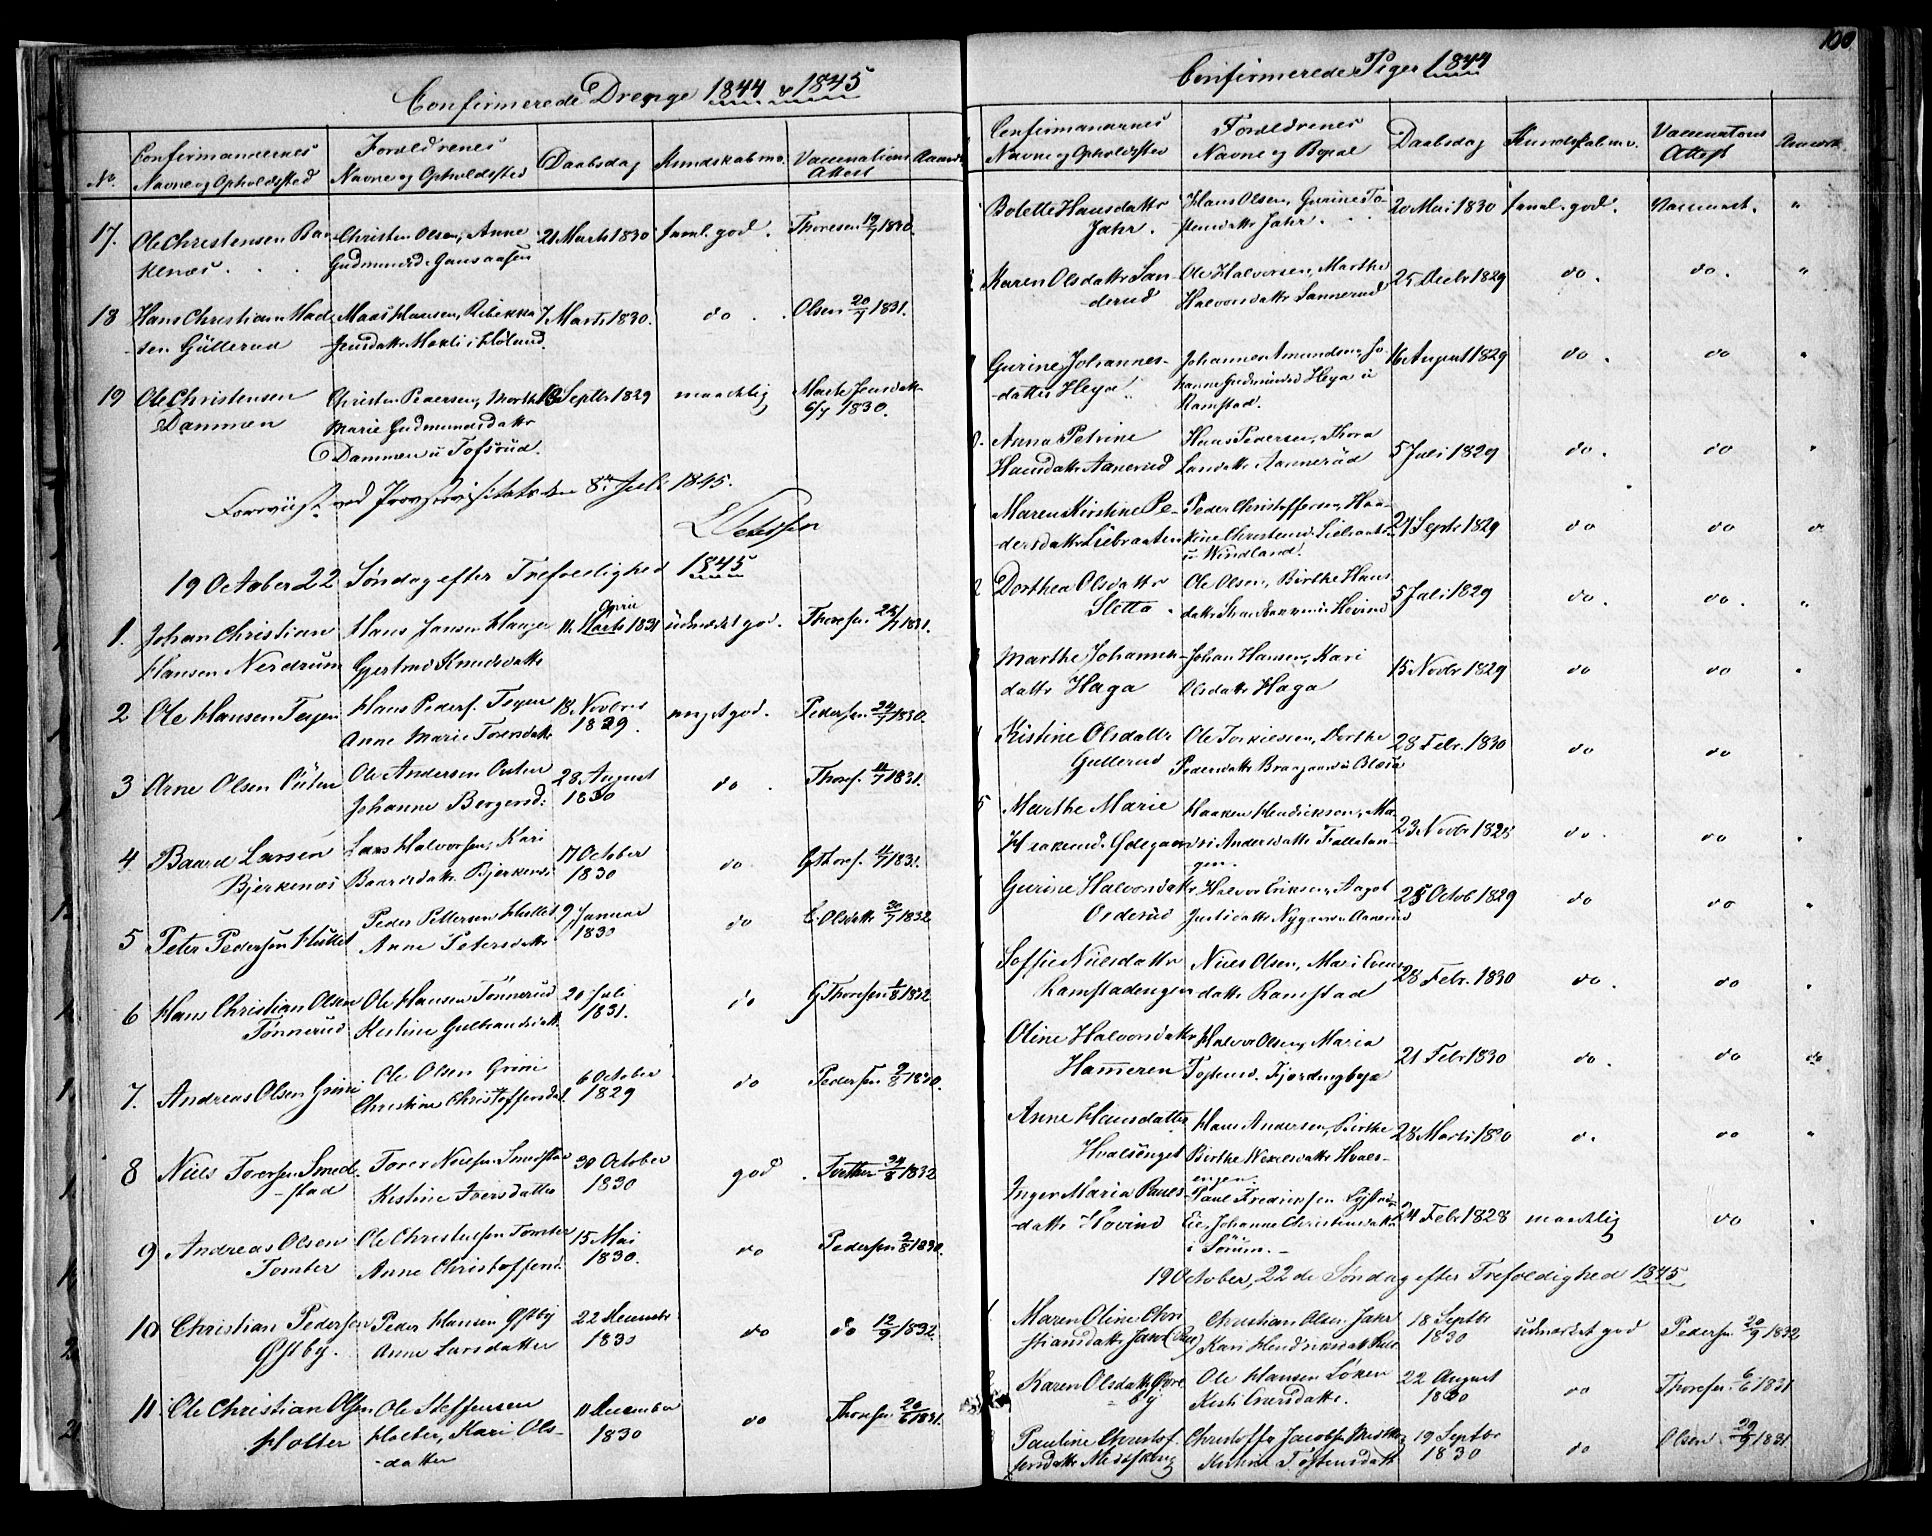 Confirmerede Drenge 1844 & 1845
No. Confirmanternes Navne og Opholdssted Forældrenes Navne og Opholdssted Daabsdag Kundskab m.v. Vaccinations Attest
17. Ole Christensen Christen Olsen, Anne 21 Marts 1830 saml. god. Thoresen 19/7 1830.
kenæs. Gudmundsd.
18 Hans Christian Mad- Mads Hansen, Rebekka 7 Marts 1830. do. Olsen 20/7 1831.
sen Güllerud Jensdatter i Høland.
19 Ole Christensen Christen Pedersen, Marthe 13 Septbr 1829 maadelig Marte Jensdatter
Dammen Marie Gudmundsdatter 6/7 1830.
Dammen u Tofsrud.
ved den 8de Juli 1845.
19 October 22 Søndag efter Trefoldighed 1845
April
1. Johan Christian Hans Jansen Haugen 11 Marts 1831 udmærket god. Thoresen 25/7 1831.
Hansen Nerdrum Gjertrud Knudsdatter
2 Ole Hansen Teyen Hans Peders. Teyen 18 Novbris meget god. Pedersen 24/7 1830.
Anne Marie Toresdatter 1829.
3 Arne Olsen Ole Andersen 28 August do. Thores. 11/7 1831.
Johanne Bergersd: 1830
4 Baard Larsen Lars Halvorsen, Kari 17 October do G Thores. 11/7 1831.
Bjerkenæs Baardsdatter Bjerkenæs 1830
5 Peter Pedersen Hullet Peder Pettersen Hullet 9 Januar do E. Olsdatter 30/7 1832
Anne Petersdatter 1830
6 Hans Christian Olsen Ole Hansen Tønnerud 20 Juli do G Thoresen 1/8 1832
Tønnerud Kirstine Gulbrandsdatter 1831.
7. Andreas Olsen Grini Ole Olsen Grini 6 October do Pedersen 9/8 1830.
Christine Christoffersdat. 1829
8 Niels Toresen Smed- Torer Nielsen Smedstad 30 October god. 24/8 1832
stad Kistine Iversdatter 1830
9 Andreas Olsen Ole Christensen Tomter 15 Mai do Pedersen 9/8 1830.
Tomter Anne Christoffersd. 1830.
10 Christian Pedersen Peder Hansen Østby 22 Decembr do do 12/9 1832.
Østby. Anne Larsdatter 1830
11. Ole Christian Olsen Ole Steffensen 11 December do Thoresen 20/6 1831.
Holter Holter, Kari Ols- 1830
-datter
100
Confirmerede Piger 1844
Confirmanternes Navne og Opholdssted Forældrenes Navne og Bopæl Daabsdag Kundskab m.v. Vaccinations Attest
Bolette Hansdatter Hans Olsen, Gurine To- 20 Mai 1830 saml. god. Vaccineret. "
Jahr. stensdatter Jahr.
Karen Olsdatter San- Ole Halvorsen, Marthe 25 Decbr 1829 do. do. "
derud Halvorsdatter Sannerud
Gurine Johannes- Johannes Amundsen, Jo- 16 August 1829 do. do "
datter Heya. hanne Gudmundsd Heya u
Ramstad.
Anna Petrine Hans Pedersen, Thora 5 Juli 1829 do. do "
Hansdatter Aanerud Larsdatter Aannerud
Maren Kirstine Pe- Peder Christoffersen, Haa- 27 Septr 1829 do do "
dersdatter Liebraaten kine Christensd. Liebraaten
u Windland.
Dorthea Olsdatter Ole Olsen, Birthe Hans 5 Juli 1829 do. do. "
Sletta. datter u Hovind
Marthe Johannes- Johan Hansen, Kari 15 Novbr 1829 do do "
datter Haga Olsdatter Haga
Kistine Olsdatter Ole Torkielssen, Dorthe 28 Febr. 1830 do do
Gullerud Pedersdatter Braagaard u
5 Marthe Marie Haaken Hendricksen, Ma- 23 Novbr 1828 do. do "
Haakensd. Ødegaard ri Andersdatter Fallestan-
gen.
Gurine Halvorsdatter Halvor Eriksen, Aagot 25 Octob 1829 do do "
Orderud Justsdatter Nygaard u Aanerud
Soffie Nielsdatter Niels Olsen, Mari Evens 28 Febr. 1830 do. do "
Ramstadengen datter Ramstad
Oline Halvorsdatter Halvor Olsen, Maria 21 Febr 1830 do. do do
Hammeren Tostensd. Fjerdingbye
Anne Hansdatter Hans Andersen, Birthe 28 Marts 1830 do. do "
Hvalsenget Birthe Nielsdatter Hvals-
engen.
Inger Maria Pauls- Paul Fredriksen 24 Febr 1828 maadelig do "
datter Hovind Eie, Johanne Christiansdatter
i Sørum.
19 October, 22de Søndag efter Trefoldighed 1845
1 Maren Oline Chri Christian Olsen Jahr 18 Septbr udmærket god Pedersen 20/9 1832
stiansdatter Jahr Kari Hendriksdatter 1830
Karen Olsdatter Øvre Ole Hansen Løken 22 August do Thoresen 6/6 1831
by Kirsti Eversdatter. 1830
Pauline Christof- Christoffer Jacobsen 19 Septbr do Olsen 29/9 1831
fersdatter Kirstine Tostensdatter 1830